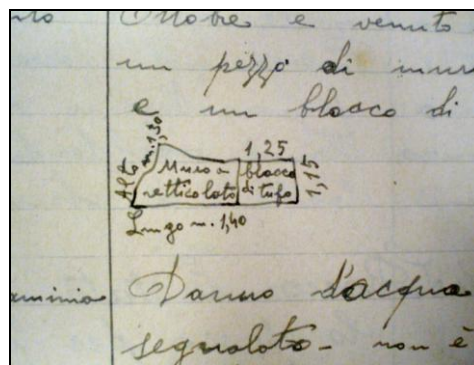 Ottobre e venuto
un pezzo di
e un blocco di
1,25
Alt m. 1,30
Muro a
retticolato
blocco
di tufo
1,15
Lungo m. 1,40
Danno d'acqua
segnalato - non è